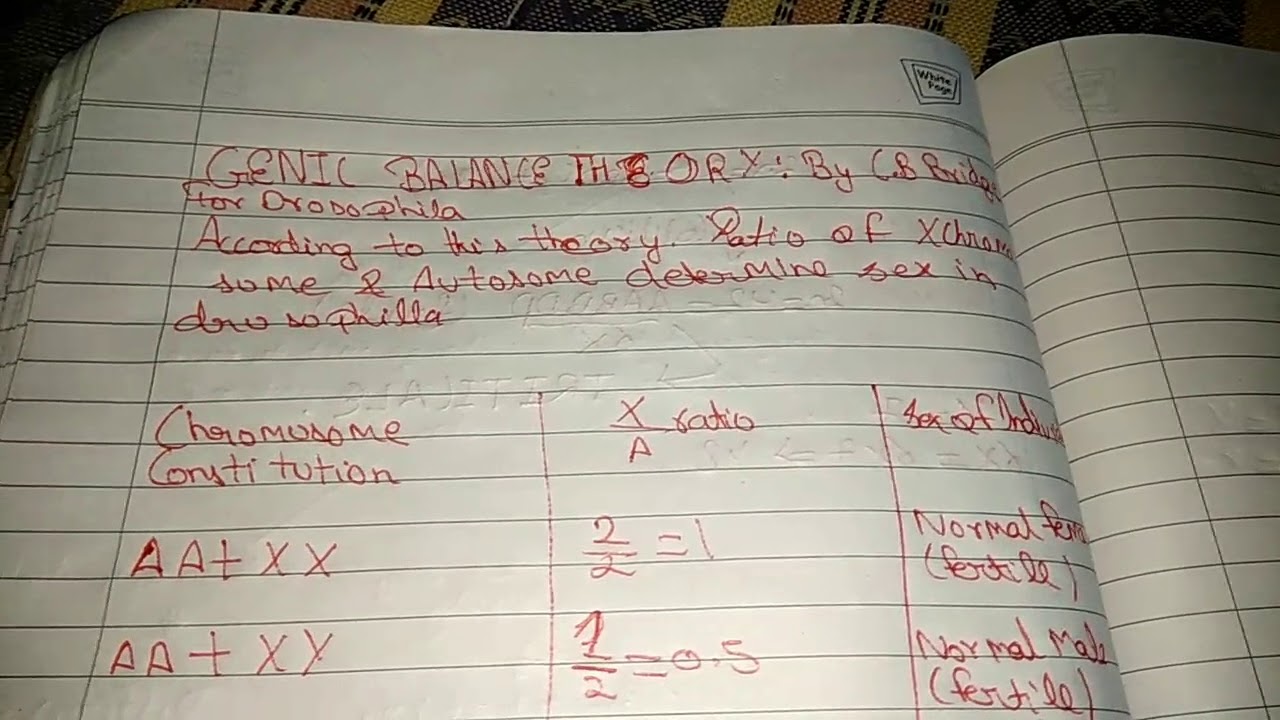 White
Page
GENIC BALANCE THEORY: By C.B Bridge
for Drosophila
According to this theory. Ratio of XChromo
some & Autosome determine sex in
drosophilla
Chromosome
Constitution
X/A ratio
Sex of Individu
AA+XX
2/2 =1
Normal fem
(fertile)
AA+XY
1/2 =0.5
Normal Male
(fertile)